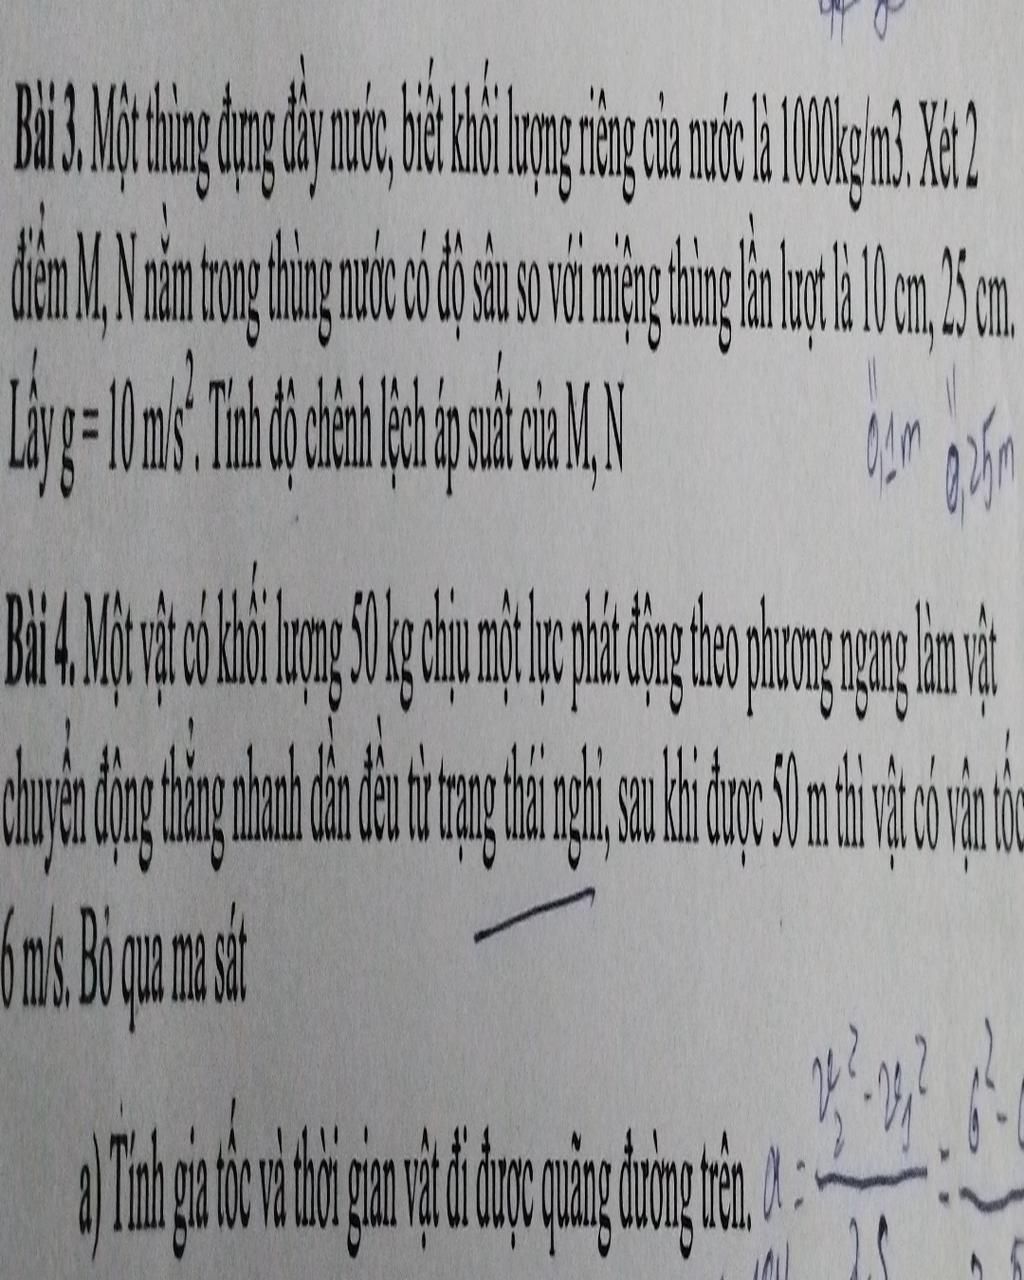 Bài 3. Một thùng đựng đầy nước, biết khối lượng riêng của nước là 1000kg/m3. Xét 2
điểm M, N nằm trong thùng nước có độ sâu so với miệng thùng lần lượt là 10 cm, 25 cm.
Lấy g = 10 m/s². Tính độ chênh lệch áp suất của M, N
0,1m 0,25m
Bài 4. Một vật có khối lượng 50 kg chịu một lực phát động theo phương ngang làm vật
chuyển động thẳng nhanh dần đều từ trạng thái nghỉ, sau khi được 50 m thì vật có vận tốc
6 m/s. Bỏ qua ma sát
v₂² - v₁² 6² -
a) Tính gia tốc và thời gian vật đi được quãng đường trên. a = =
2.S